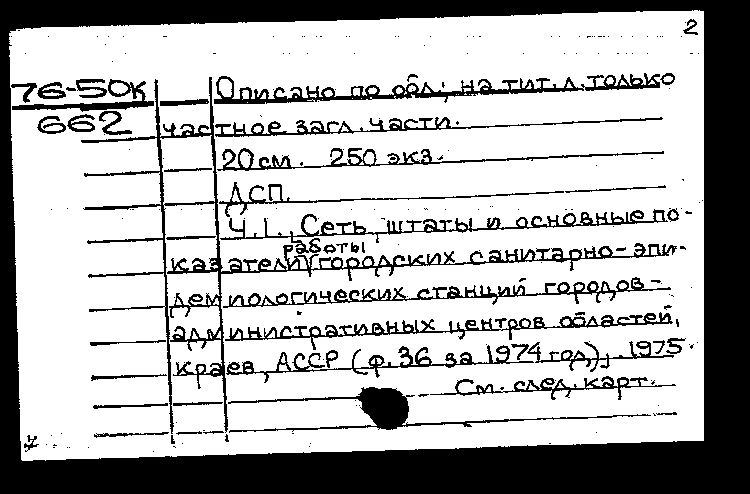 2
76-50к Описано по обл; на тит. л. только
662 частное загл. части.
20 см. 250 экз.
ДСП.
Ч.1., Сеть, штаты и основные по-
работы
казатели городских санитарно-эпи-
демиологических станций городов-
административных центров областей,
краев, АССР (ф. 36 за 1974 год), 1975.
См. след. карт.